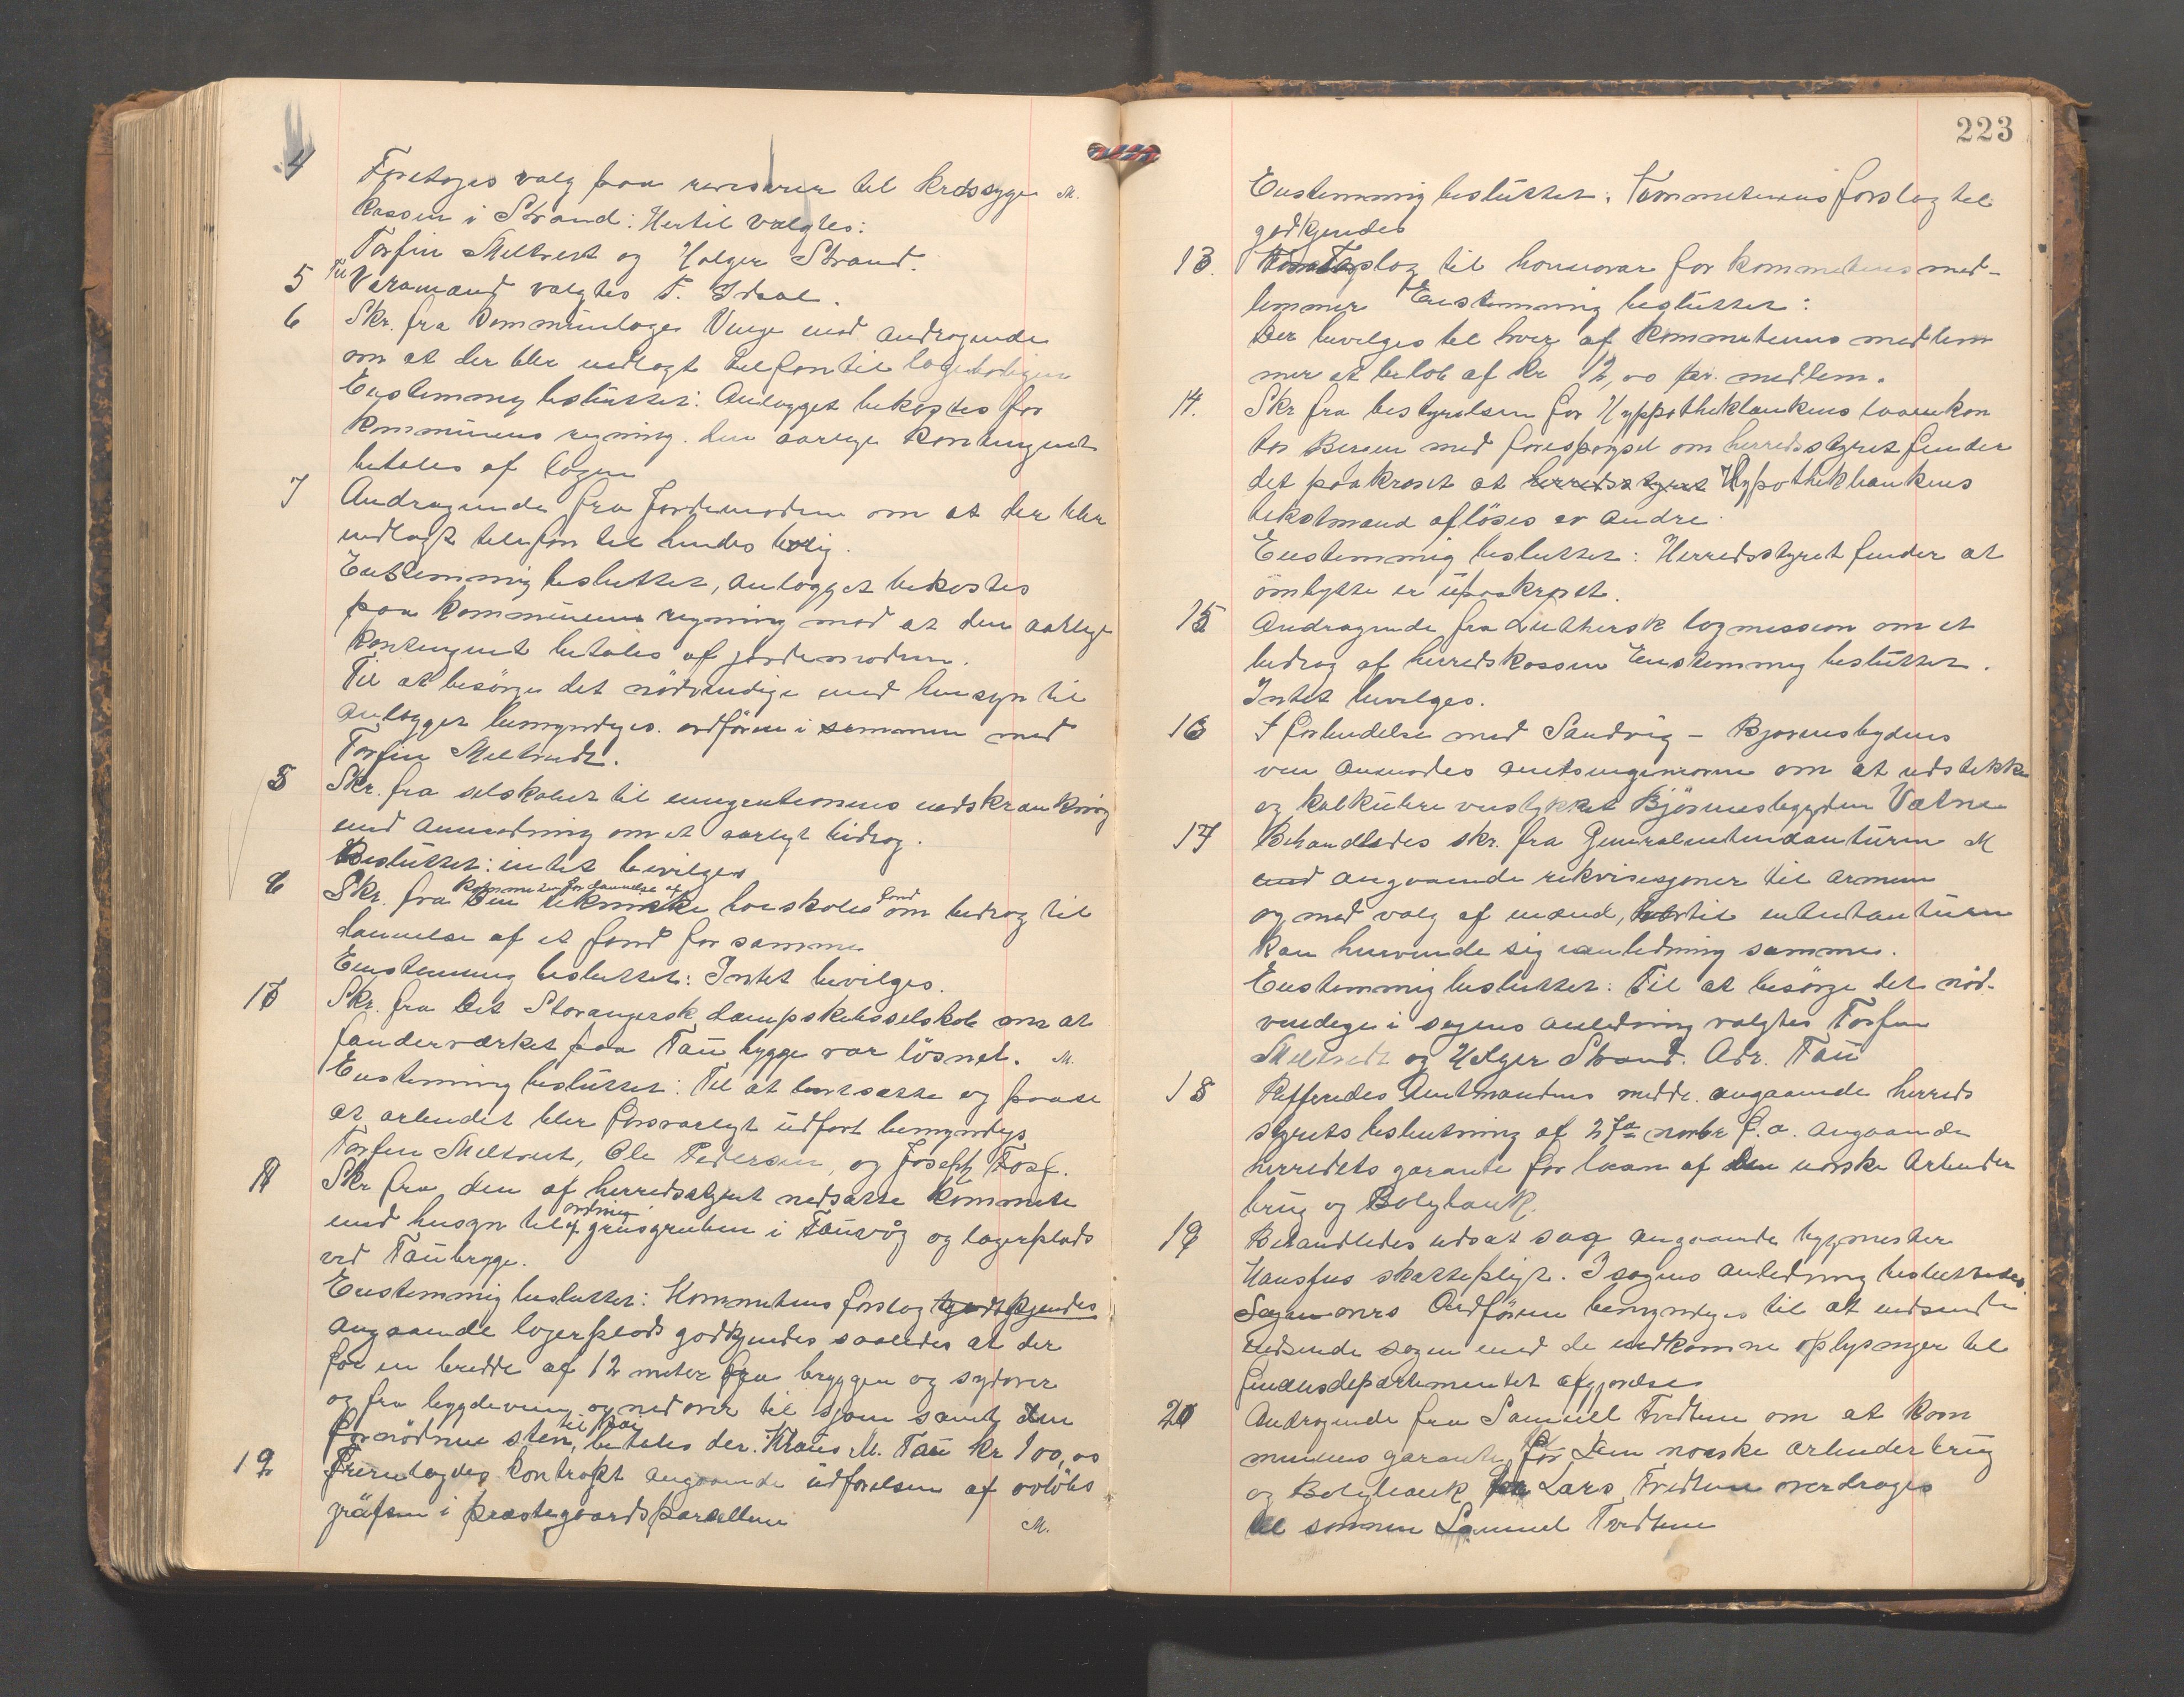 4 Foretages valg paa revisorer til kredssyge M.
kassen i Strand: Hertil valgtes:
Torfin Meltveit og Holger Strand.
5 Til Varamand valgtes T. Idsal.
6 Skr. fra kommunlæge Vinge med andragende
om at der blir indlagt telefon til lægeboligen
Enstemmig besluttet: Anlægget bekostes for
kommunens regning. den aarlige kontingent
betales af lægen
7 Andragende fra jordemoderen om at der blir
indlagt telefon til hendes bolig.
Enstemmig besluttet, anlægget bekostes
paa kommunens regning mod at den aarlige
kontingent betales af jordemoderen.
Til at besörge det nödvendige med hensyn til
anlægget bemyndiges ordføren i sammen med
Torfin Meltveidt.
8 Skr. fra selskabet til emigrationens indskrænkning
med anmodning om et aarligt bidrag.
Besluttet: intet bevilges
9 Skr. fra komiteen for dannelse af Den tekniske høiskoles fond om bidrag til
dannelse af et fond for samme
Enstemmig besluttet: Intet bevilges.
10 Skr. fra Det Stavangerske dampskibsselskab om at
fenderværket paa Tau brygge var lösnet. M.
Enstemmig besluttet: Til at bortsætte og paase
at arbeidet blir forsvarligt udført bemyndiges
Torfin Meltveit, Ole Pedersen, og Joseph Fosf.
11 Skr fra den af herredsstyret nedsatte kommite
med hensyn til ordning af grusgruben i Tauvåg og lagerplads
ved Taubrygge.
Enstemmig besluttet: Kommiteens forslag godtkjendes
angaaende lagerplads godkjendes saaledes at der
for en bredde af 12 meter fra bryggen og sydover
og fra bygdeveien og nedover til sjøen samt den
fornödne sten til kai, betales der Klaus M. Tau kr 100,00
12 Fremlagdes kontrakt angaaende udførelsen af avløbs
gröften i præstegaardsparcellene M.
223
Enstemmig besluttet: Kommiteens forslag til
godkjendes
13. Forslag til honorar for kommiteens med-
lemmer Enstemmig besluttet:
Der bevilges til hver af kommiteens medlem
mer et beløb af kr 12,00 pr. medlem.
14. Skr fra bestyrelsen for Hyppothekbankens laanekon
tor Bergen med forespørgsel om herredsstyret finder
det paakrævet at herredsstyret Hypothekbankens
takstmænd aflöses av andre.
Enstemmig besluttet: Herredsstyret finder at
ombytte er upaakrævet.
15 Andragende fra Luthersk lægmission om et
bidrag af herredskassen Enstemmig besluttet.
Intet bevilges.
16 I forbindelse med Sandvig - Bjørensbygdens
vei anmodes amtsingeniøren om at udstikke
og kalkulere veistykket Bjørensbygden Vatne
17 Behandledes skr. fra Generalintendanturen M
med angaaende rekvisisjoner til armeen
og med valg af mænd, hvortil intendanturen
kan henvende sig i anledning samme.
Enstemmig besluttet: Til at besörge det nöd-
vendige i sagens anledning valgtes Torfin
Meltveit og Holger Strand. Adr. Tau
18 Refferedes Amtmandens medde. angaaende herreds
styrets beslutning af 27de novbr f.a. angaaende
herredets garanti for laan af Den norske Arbeider
brug og Boligbank.
19 Behandledes udsat sag angaaende bygmester
Hansens skattepligt. I sagens anledning besluttedes
Sagen overs Ordføren bemyndiges til at indsende
indsende sagen med de indkomne oplysninger til
finansdepartementet afgjørelse
20 Andragende fra Samuel Tvedten om at kom
munens garanti for Den norske arbeiderbrug
og Boligbank for Lars Tvedten overdrages
til sønnen Samuel Tvedten